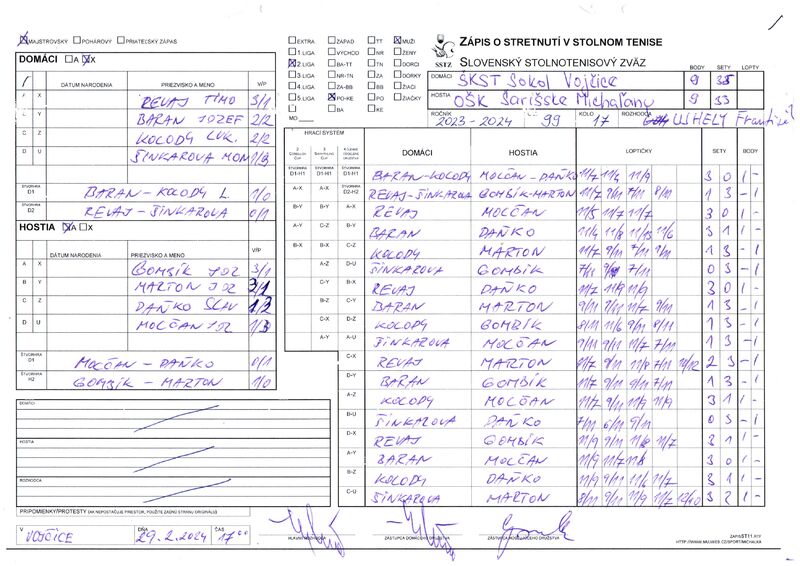 MAJSTROVSKÝ POHÁROVÝ PRIATEĽSKÝ ZÁPAS
DOMÁCI A X
DÁTUM NARODENIA PRIEZVISKO A MENO V/P
A X REVAJ TIMO 3/1
B Y BARAN JOZEF 2/2
C Z KOLODY LUK. 2/2
D U ŠINKAROVA MON 1/3
ŠTVORHRA D1 BARAN - KOLODY L. 1/0
ŠTVORHRA D2 REVAJ - ŠINKAROVA 0/1
HOSTIA A X
DÁTUM NARODENIA PRIEZVISKO A MENO V/P
A X GOMBÍK JOZ 3/1
B Y MARTON JOZ 3/1
C Z DAŇKO SLAV 1/3
D U MOLČAN JOZ 1/3
ŠTVORHRA D1 MOLČAN - DAŇKO 0/1
ŠTVORHRA H2 GOMBÍK - MARTON 1/0
DOMÁCI
HOSTIA
ROZHODCA
PRIPOMIENKY/PROTESTY (AK NEPOSTAČUJE PRIESTOR, POUŽITE ZADNÚ STRANU ORIGINÁLU)
V VOJČICE DŇA 29.2.2024 ČAS 17°°
EXTRA ZÁPAD TT MUŽI
1.LIGA VÝCHOD NR ŽENY
2.LIGA BA-TT TN DORCI
3.LIGA NR-TN ZA DORKY
4.LIGA ZA-BB BB ŽIACI
5.LIGA PO-KE PO ŽIAČKY
BA KE
MO
SSTZ
ZÁPIS O STRETNUTÍ V STOLNOM TENISE
SLOVENSKÝ STOLNOTENISOVÝ ZVÄZ BODY SETY LOPTY
DOMÁCI ŠKST Sokol Vojčice 9 35
HOSTIA OŠK Šarišské Michaľany 9 33
ROČNÍK 2023-2024 Č. 99 KOLO 17 ROZHODCA UJHELY František
HRACÍ SYSTÉM DOMÁCI HOSTIA LOPTIČKY SETY BODY
D1-H1 D1-H1 D1-H1 BARAN-KOLODY MOLČAN-DAŇKO 11/7 11/4 11/9 3 0 1 -
A-X A-X D2-H2 REVAJ-ŠINKAROVA GOMBÍK-MARTON 11/7 9/11 7/11 8/11 1 3 - 1
B-Y B-Y A-X REVAJ MOLČAN 11/5 11/7 11/7 3 0 1 -
A-Y C-Z B-Y BARAN DAŇKO 11/4 11/8 11/13 11/6 3 1 1 -
B-X B-X C-Z KOLODY MARTON 11/7 9/11 7/11 9/11 1 3 - 1
A-Z D-U ŠINKAROVA GOMBÍK 7/11 9/11 7/11 0 3 - 1
C-Y B-X REVAJ DAŇKO 11/7 11/9 11/9 3 0 1 -
B-Z C-Y BARAN MARTON 9/11 9/11 11/7 9/11 1 3 - 1
C-X D-Z KOLODY GOMBÍK 8/11 11/6 9/11 8/11 1 3 - 1
A-Y A-U ŠINKAROVA MOLČAN 9/11 9/11 11/7 7/11 1 3 - 1
C-X REVAJ MARTON 2 3 - 1
D-Y BARAN GOMBÍK 1 3 - 1
A-Z KOLODY MOLČAN 11/7 9/11 11/9 11/9 3 1 1 -
B-U ŠINKAROVA DAŇKO 7/11 6/11 9/11 0 3 - 1
D-X REVAJ GOMBÍK 11/9 9/11 11/8 11/7 3 1 1 -
A-Y BARAN MOLČAN 11/9 11/7 11/8 3 0 1 -
B-Z KOLODY DAŇKO 11/9 9/11 11/6 11/7 3 1 1 -
C-U ŠINKAROVA MARTON 8/11 11/9 9/11 11/7 12/10 3 2 1 -
HLAVNÝ ROZHODCA ZÁSTUPCA DOMÁCEHO DRUŽSTVA ZÁSTUPCA HOSŤUJÚCEHO DRUŽSTVA
ZAPISST11.RTF
HTTP://WWW.MUJWEB.CZ/SPORT/MICHALKA